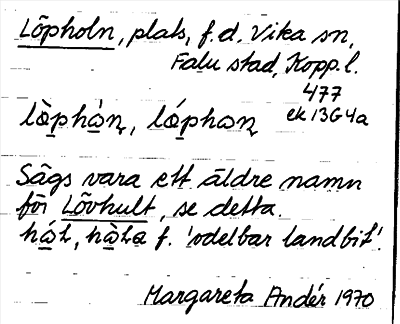 Löpholn, plats, f.d. Vika sn,
Falu stad, Kopp. l.
477
ek 13G4a
lö̀phån, lö́phon
Sägs vara ett äldre namn
för Lövhult, se detta.
f. 'odelbar landbit'.
Margareta Andér 1970